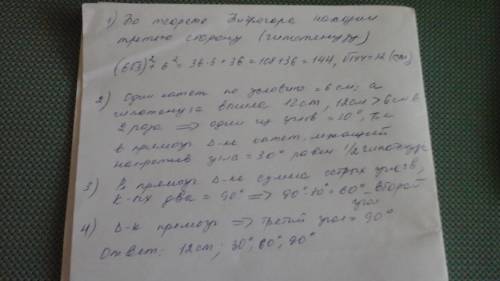 1) По теореме Пифагора находим
третью сторону (гипотенузу)
(6√3)² + 6² = 36·3 + 36 = 108 + 36 = 144, √144 = 12 (см)
2) Один катет по условию = 6 см; а
гипотенуза вышла 12 см, 12 см > 6 см в
2 раза => один из углов = 30°, т.к.
в прямоуг Δ-ке катет, лежащий
напротив угла = 30° равен 1/2 гипотенузы
3) В прямоуг Δ-ке сумма острых углов,
к-рых два = 90° => 90°-30° = 60° - второй
угол
4) Δ-к прямоуг => третий угол = 90°
Ответ: 12 см; 30°, 60°, 90°